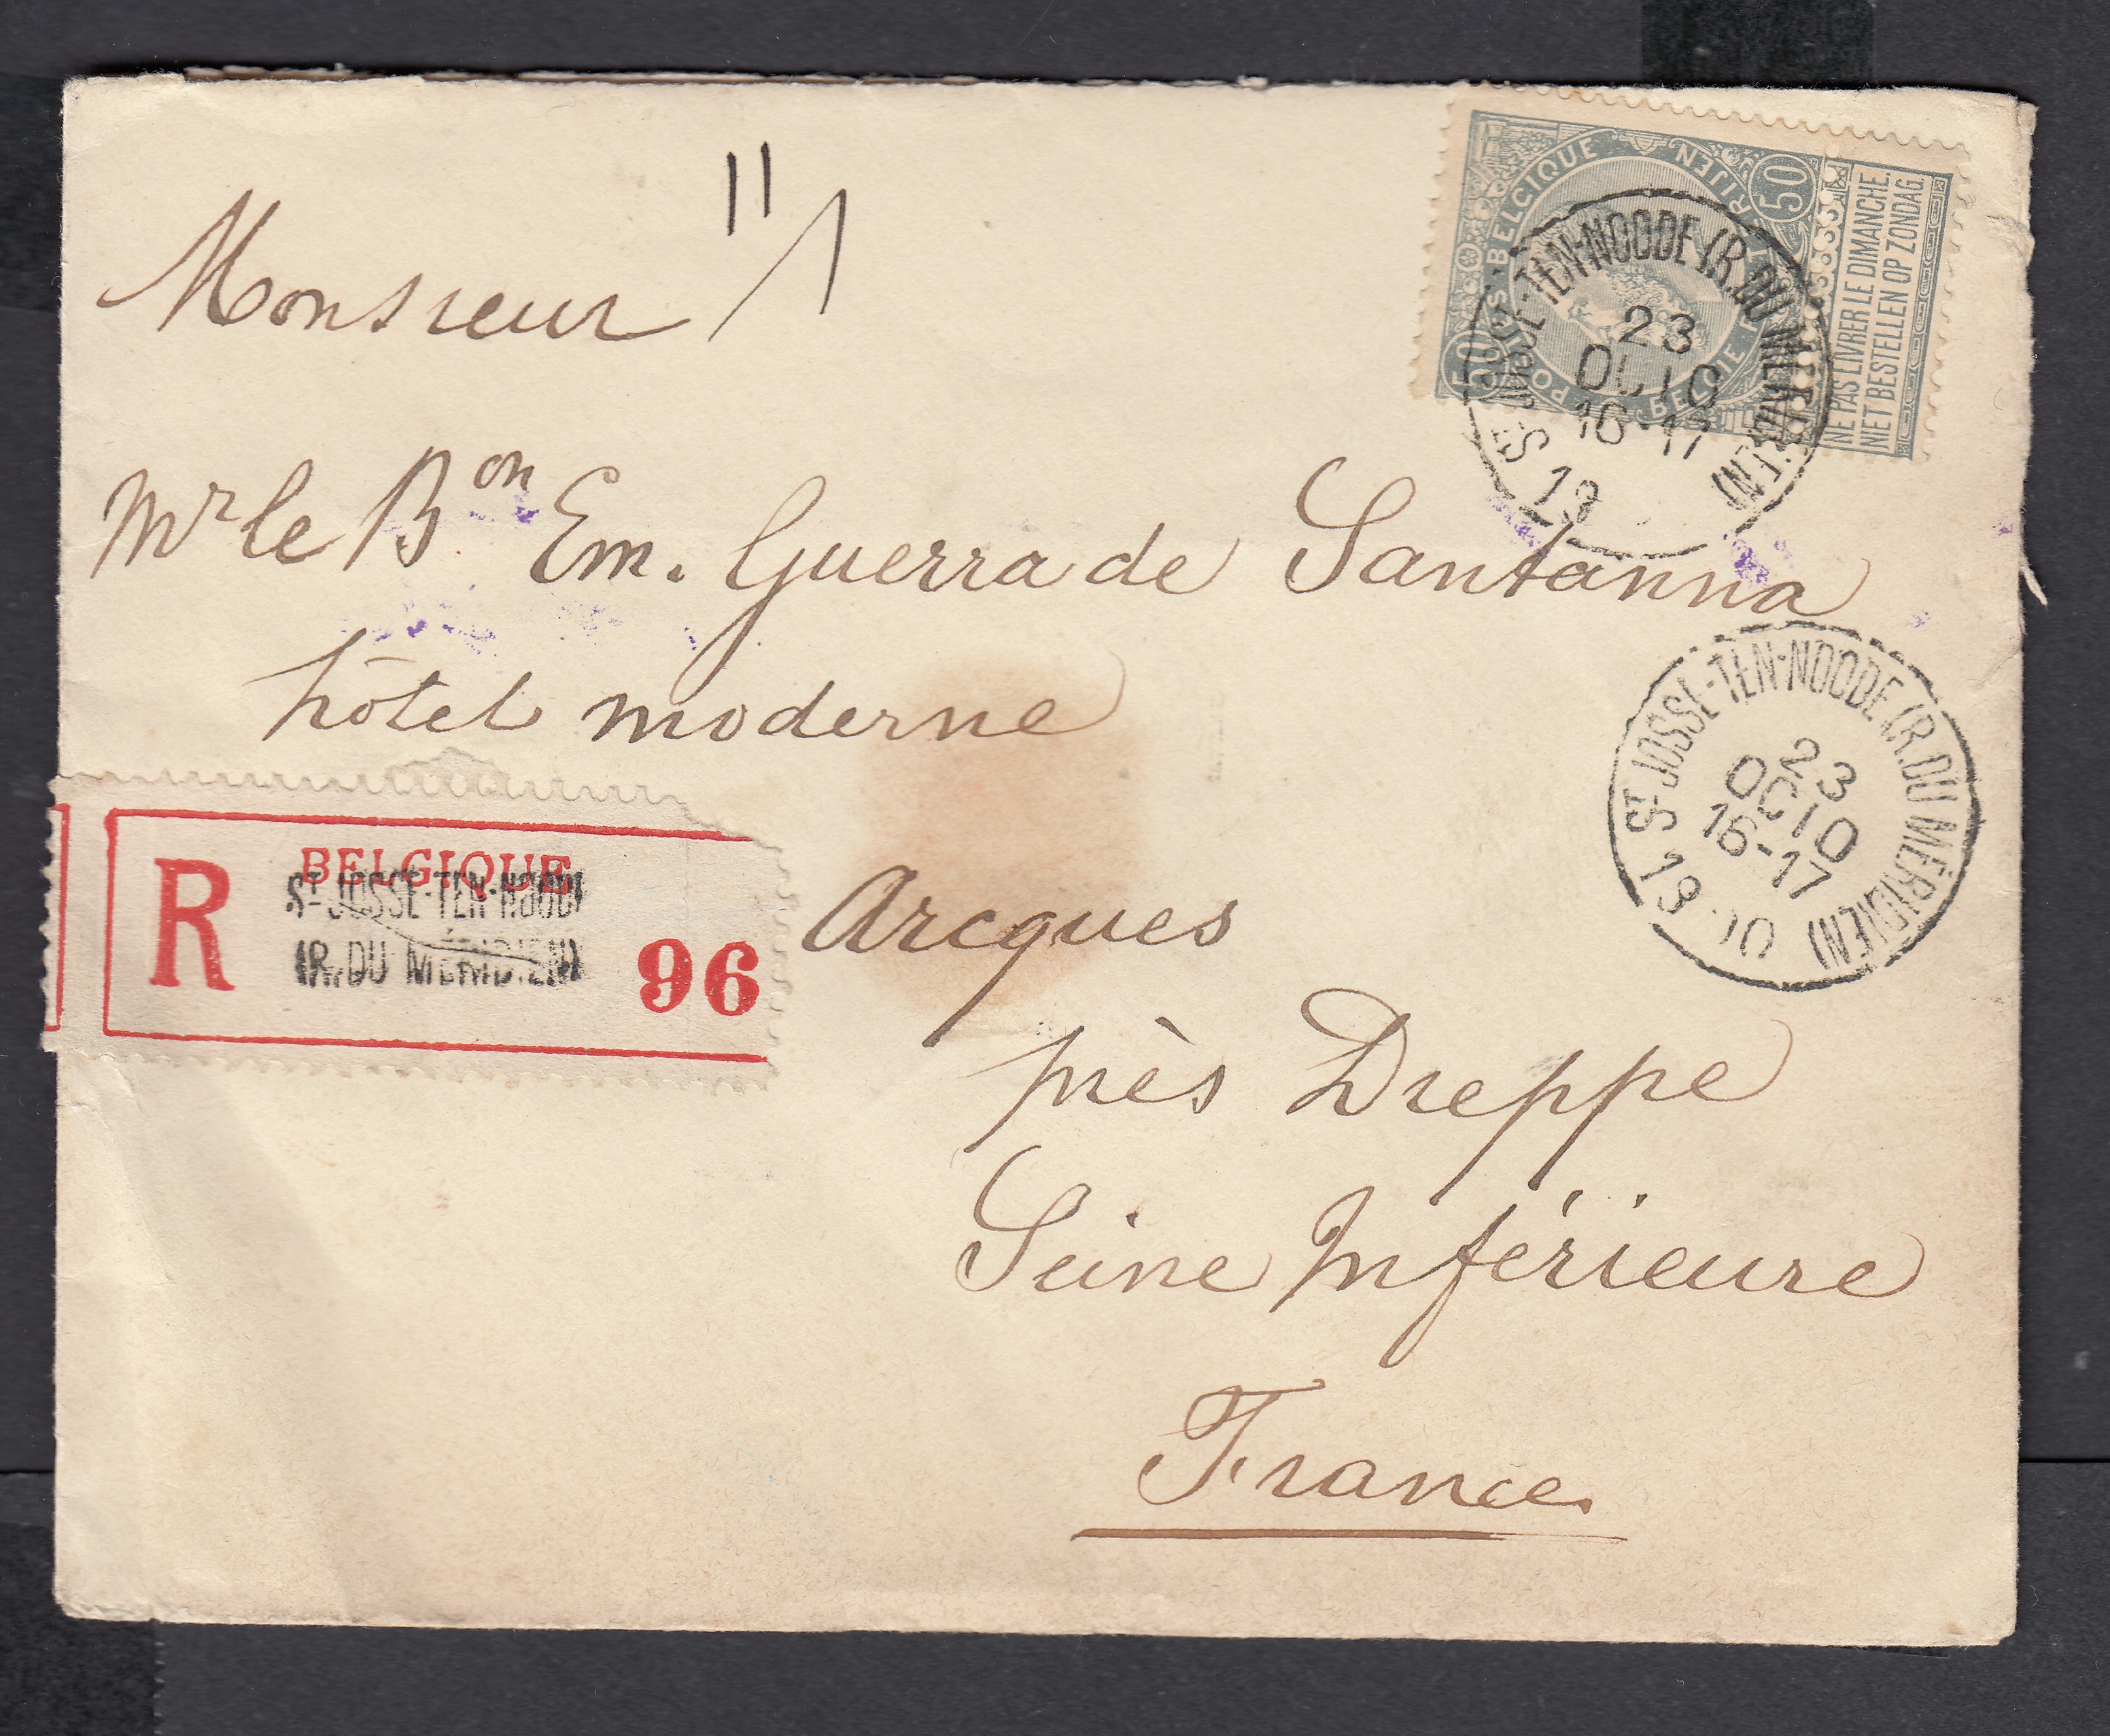 Monsieur
Mr le Bon Em. Guerra de Santanna
hôtel moderne
Arcques
près Dieppe
Seine Inférieure
France
R
BELGIQUE
ST JOSSE-TEN-NOODE
(R. DU MÉRIDIEN)
96
POSTES BELGIQUE
BELGIE POSTERIJEN
50
50
NE PAS LIVRER LE DIMANCHE.
NIET BESTELLEN OP ZONDAG.
ST JOSSE-TEN-NOODE (R. DU MÉRIDIEN)
23
OCTO
16-17
19
ST JOSSE-TEN-NOODE (R. DU MÉRIDIEN)
23
OCTO
16-17
19 00